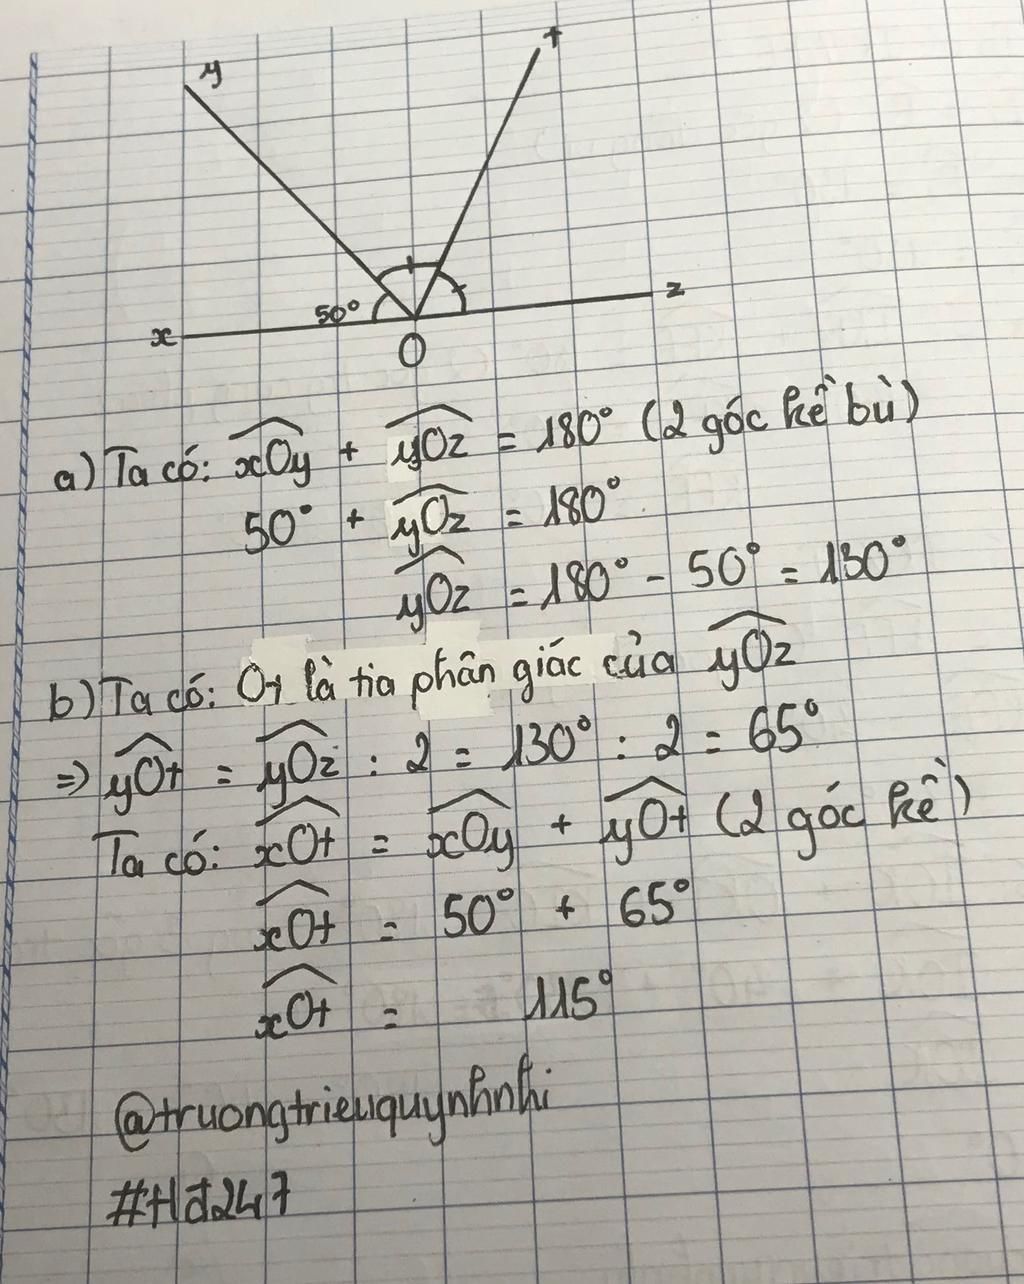 y
t
50°
x
z
O
a) Ta có: xOy + yOz = 180° (2 góc kề bù)
50° + yOz = 180°
yOz = 180° - 50° = 130°
b) Ta có: Ot là tia phân giác của yOz
=> yOt = yOz : 2 = 130° : 2 = 65°
Ta có: xOt = xOy + yOt (2 góc kề)
xOt = 50° + 65°
xOt = 115°
@truongtrieuquynhnhi
#Hđ247